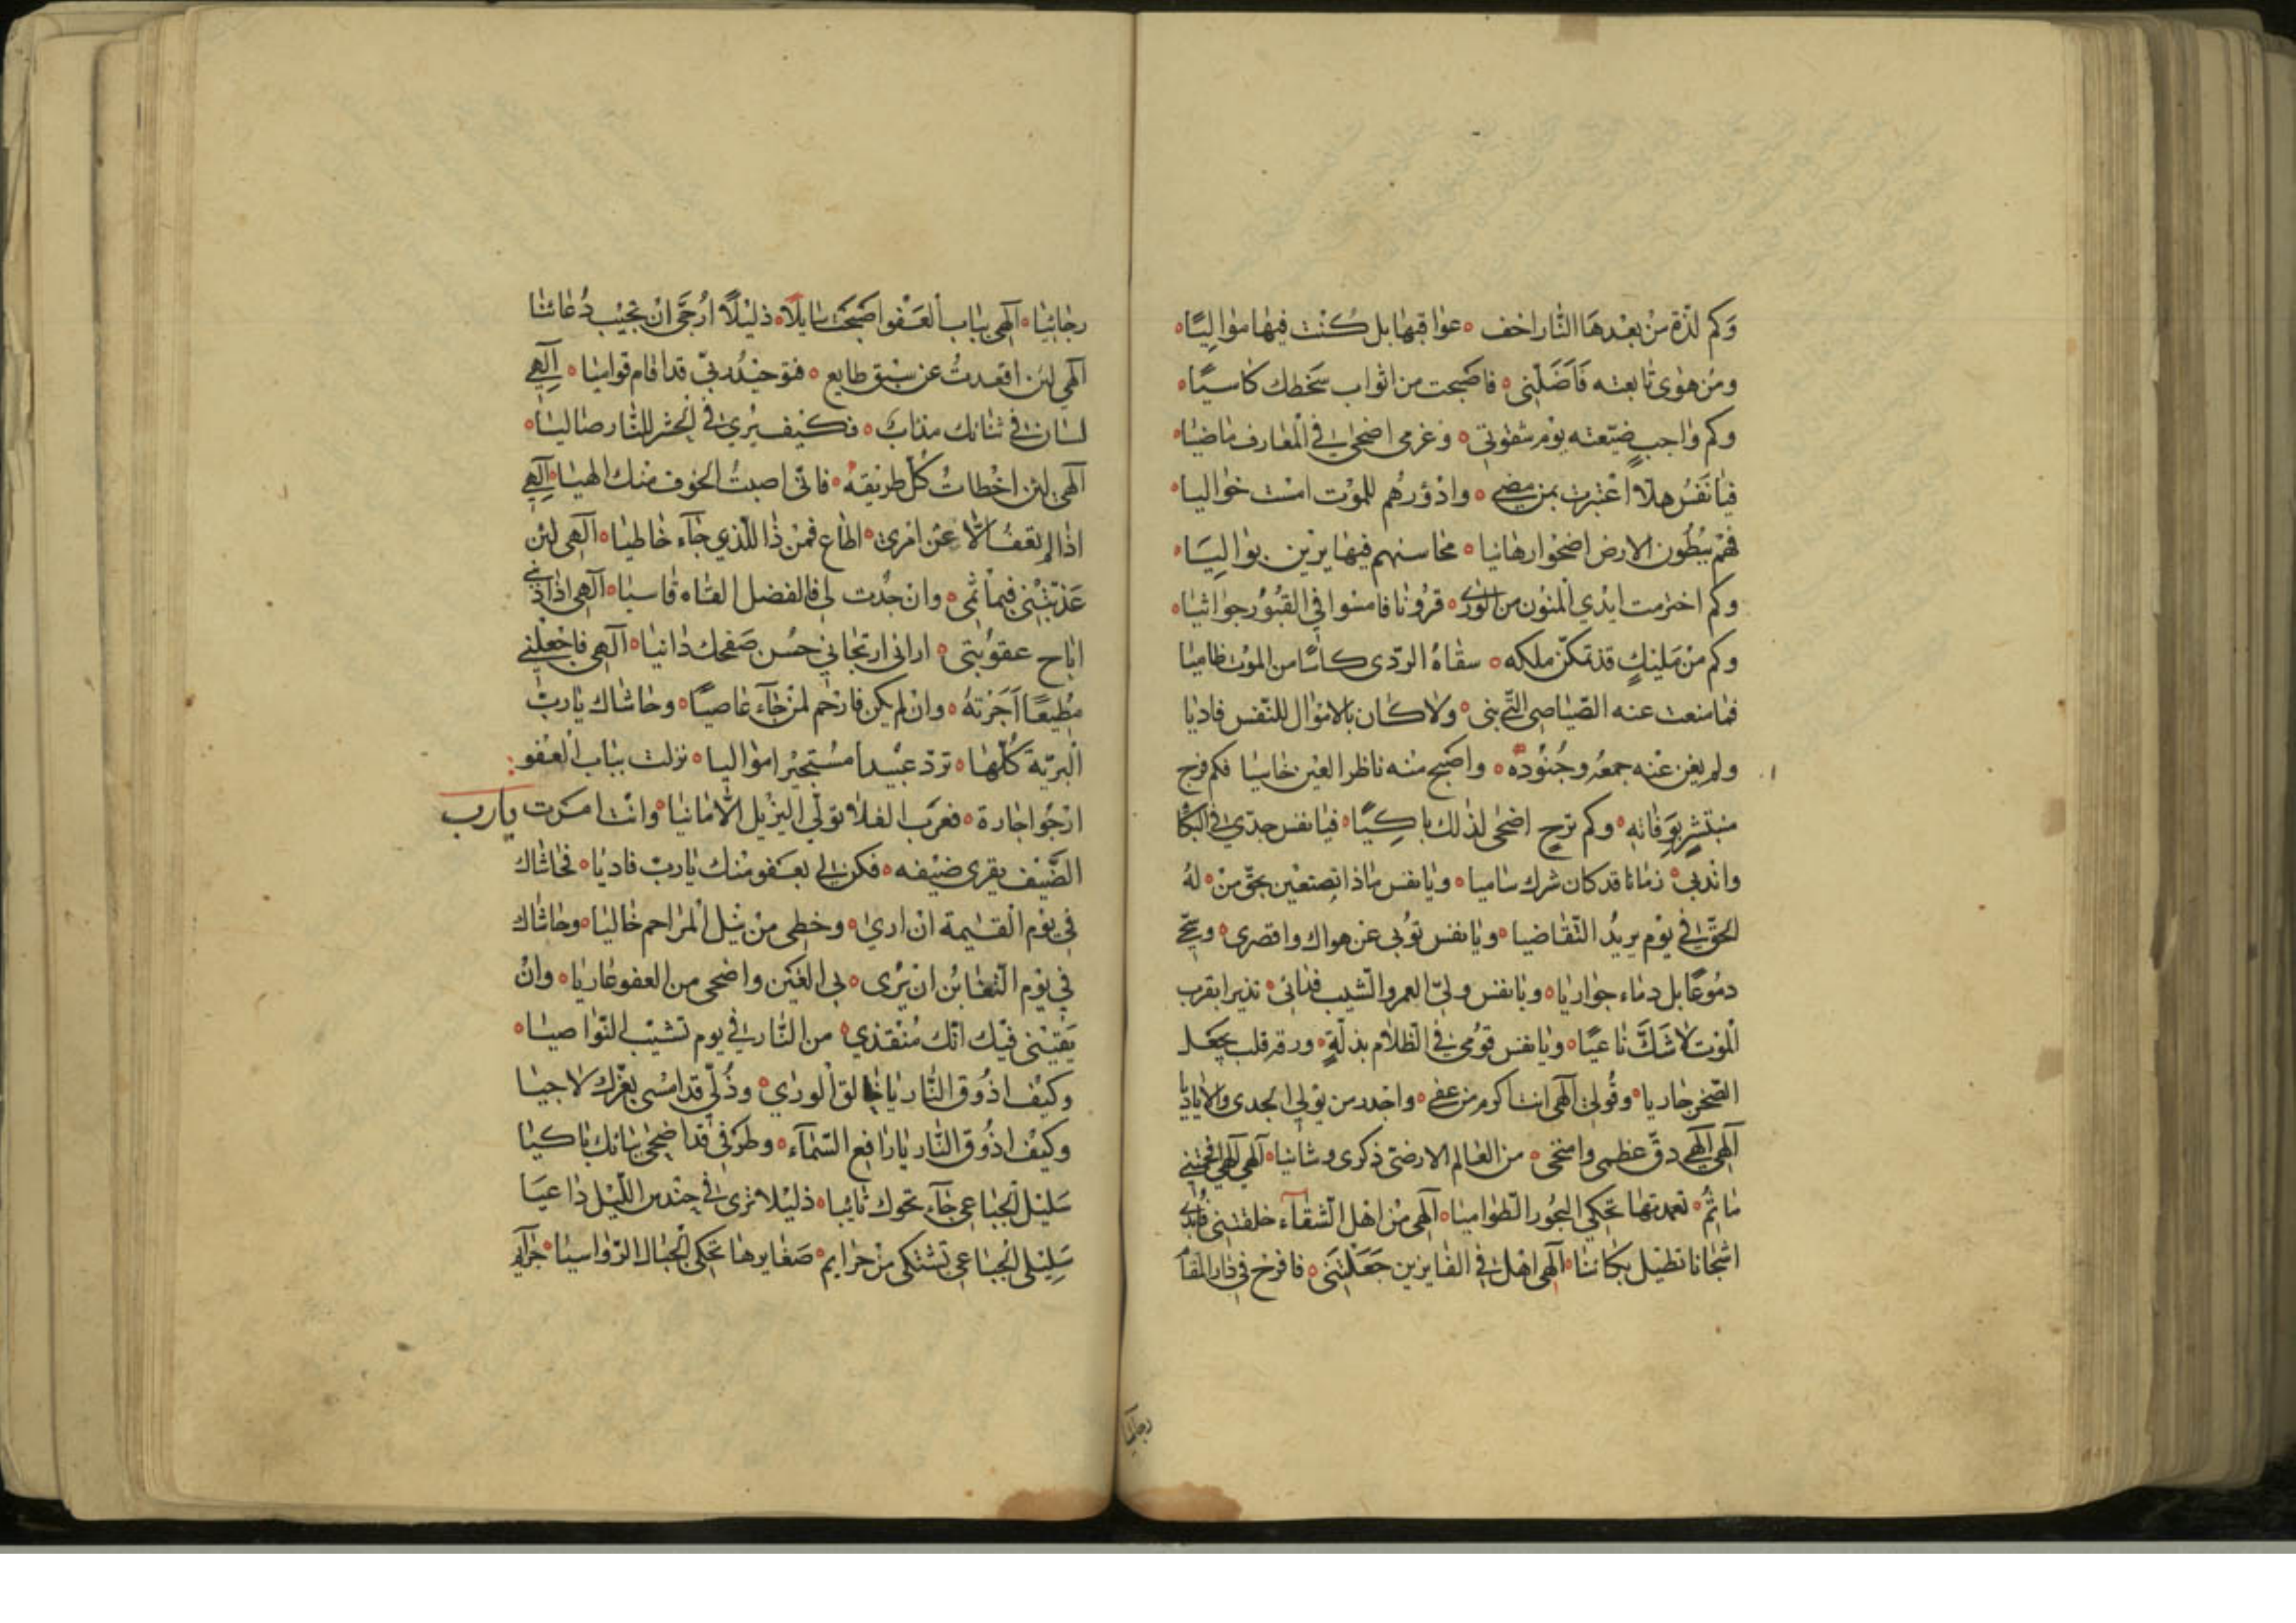 وَكم لذّة مِنْ بعْدهَا النّار اخف ٥ عواقبها بل كُنْت فيها مواليًا ٥
ومن هوى تابعته فَاَضَلّنى ٥ فاصبحت من اثواب سَخطك كاسيًا ٥
وكم واجبٍ ضيّعته يوْم شقوتى ٥ وغرمى اضحى فى المعارف ماضيا ٥
فيا نَفسُ هلّا اعْتبرت بمن مضى ٥ وادْؤرهُم للموْت امْست خواليا ٥
فهُمْ ببُطُون الارض اضحوْا رهانيا ٥ محاسنهم فيها يرْين بواليَا ٥
وكم اخترمت ايْدي المنوْن من الورى ٥ قرُونا فامسوا في القبُوْر جواثيا ٥
وكم مِنْ مَليْكٍ قدْ تمكّن ملكه ٥ سقاهُ الردّى كاسًا من الموْت ظاميا
فما منعت عنه الصّياصى التّي بنى ٥ ولا كان بالامْوال للنّفس فاديا
ولم يغن عنْه جمعهُ وجُنُوْدهُ ٥ واصْبح منْه ناظر العيْن خاسيا فكم فرح
مسْتبْشرٍ بوَفاته ٥ وكم ترحٍ اضحى لذلك باكيًا ٥ فيا نفس جدّي فى البكا
واندبى ٥ زمانا قد كان شرك ساميا ٥ ويا نفس ماذا تصنعين بحقّ منْ ٥ لهُ
الحقّ فى يوْم يريْدُ التّقاضيا ٥ ويا نفس توُبى عن هواك واقصرى ٥ وسحّي
دمُوعًا بل دماء جواريا ٥ ويا نفس ولّى العمر والشّيب فدانى ٥ نذيرا بقرب
الموْت لا شَكّ ناعيًا ٥ ويا نفس قوُمى فى الظلام بذلّةٍ ٥ ورقة قلب يجعل
الصّخر جاريا ٥ وقُولى الٓهى انت اكرم من عفى ٥ واجْدر من يوْلي الجدى والاياديا
الٓهى الٓهى دقّ عظمى وامتحى ٥ من العالم الارضىّ ذكرى وشانيا ٥ الٓهى الٓهى افجتنى
ماثمُ ٥ تعمدتها تحكي البحُور الطّواميا ٥ الٓهى منْ اهْل الشقآء خلقتنى فابْدى
اشجانا تطيْل بكائنا ٥ الٓهى اهْل فى الفايزين جَعَلْتَنى ٥ فافرح فى دار المقا
رجائيا
رجائيا ٥ الٓهى بباب العَفْو اصْبَحْت سايلًا ٥ ذليْلًا ارُجّى انْ تجيْب دُعائنا
الٓهى لئن اقعدتُ عن سبْق طايع ٥ فتوحيْدُه بى قد اقام قواميا ٥ الٓهى
لسان فى ثنائك مذاب ٥ فكيْف يُرى فى الحْشر للنّار صاليا ٥
الٓهى لئن اخْطات كُلّ طريْقهُ ٥ فانّى اصبتُ الخوف منك الهيا ٥ الٓهى
اذا لم يعْفُ الّا عنْ امْرى ٥ اطاع فمنْ ذا للّذي جآء خاطيا ٥ الٓهى لئن
عَذّبْتنى فبماْثمى ٥ وان جُدْت لى فالفضل القاه قاسيا ٥ الٓهى اذا ذنبى
اباح عقوبتى ٥ ارانى ارتجائى حُسن صَفحك دانيا ٥ الٓهى فاجْعلْنى
مطِيعًا اَجَرْتهُ ٥ وان لم يكن فارْحم لمن جآء عاصيًا ٥ وحاشاك ياربّ
الْبريّة كُلّها ٥ تردّ عبيْدا مسْتجيْرا مواليا ٥ نزلت بباب العفو:
ارْجُوا جارة ٥ فعَرب الفلا توْلى النزيل الامانيا ٥ وانت امرت يارب
الضّيف يقرى ضيْفه ٥ فكن لى بعَفو منْك ياربّ فاديا ٥ فحاشاك
فى يوْم القيْمة ان ارى ٥ وخطى منْ نيْل المراحم خاليا ٥ وحاشاك
في يوْم التّغابُن ان يُرى ٥ بى الغبن واضحى من العفو عاريا ٥ وانْ
يَقيْنى فيْك انّك مُنْقذي ٥ من النّار فى يوم تشيْب النّواصيا ٥
وكيْف اذُوْق النّار ياخالق الورى ٥ وذُلّى قد امْسى بعزّك لاجيا
وكيْف اذُوْق النّار يارافع السّماء ٥ وطرْفى قد اضحى ببابك باكيا
سَليْل الجباعى جآء نحوك تائبا ٥ ذليْلا ترى فى حنْدس اللّيْل داعيَا
سَليْلى الجباعى تشتكى منْ جرايم ٥ صَغايرها تحكى الْجبال الرّواسيا ٥ جرآيم